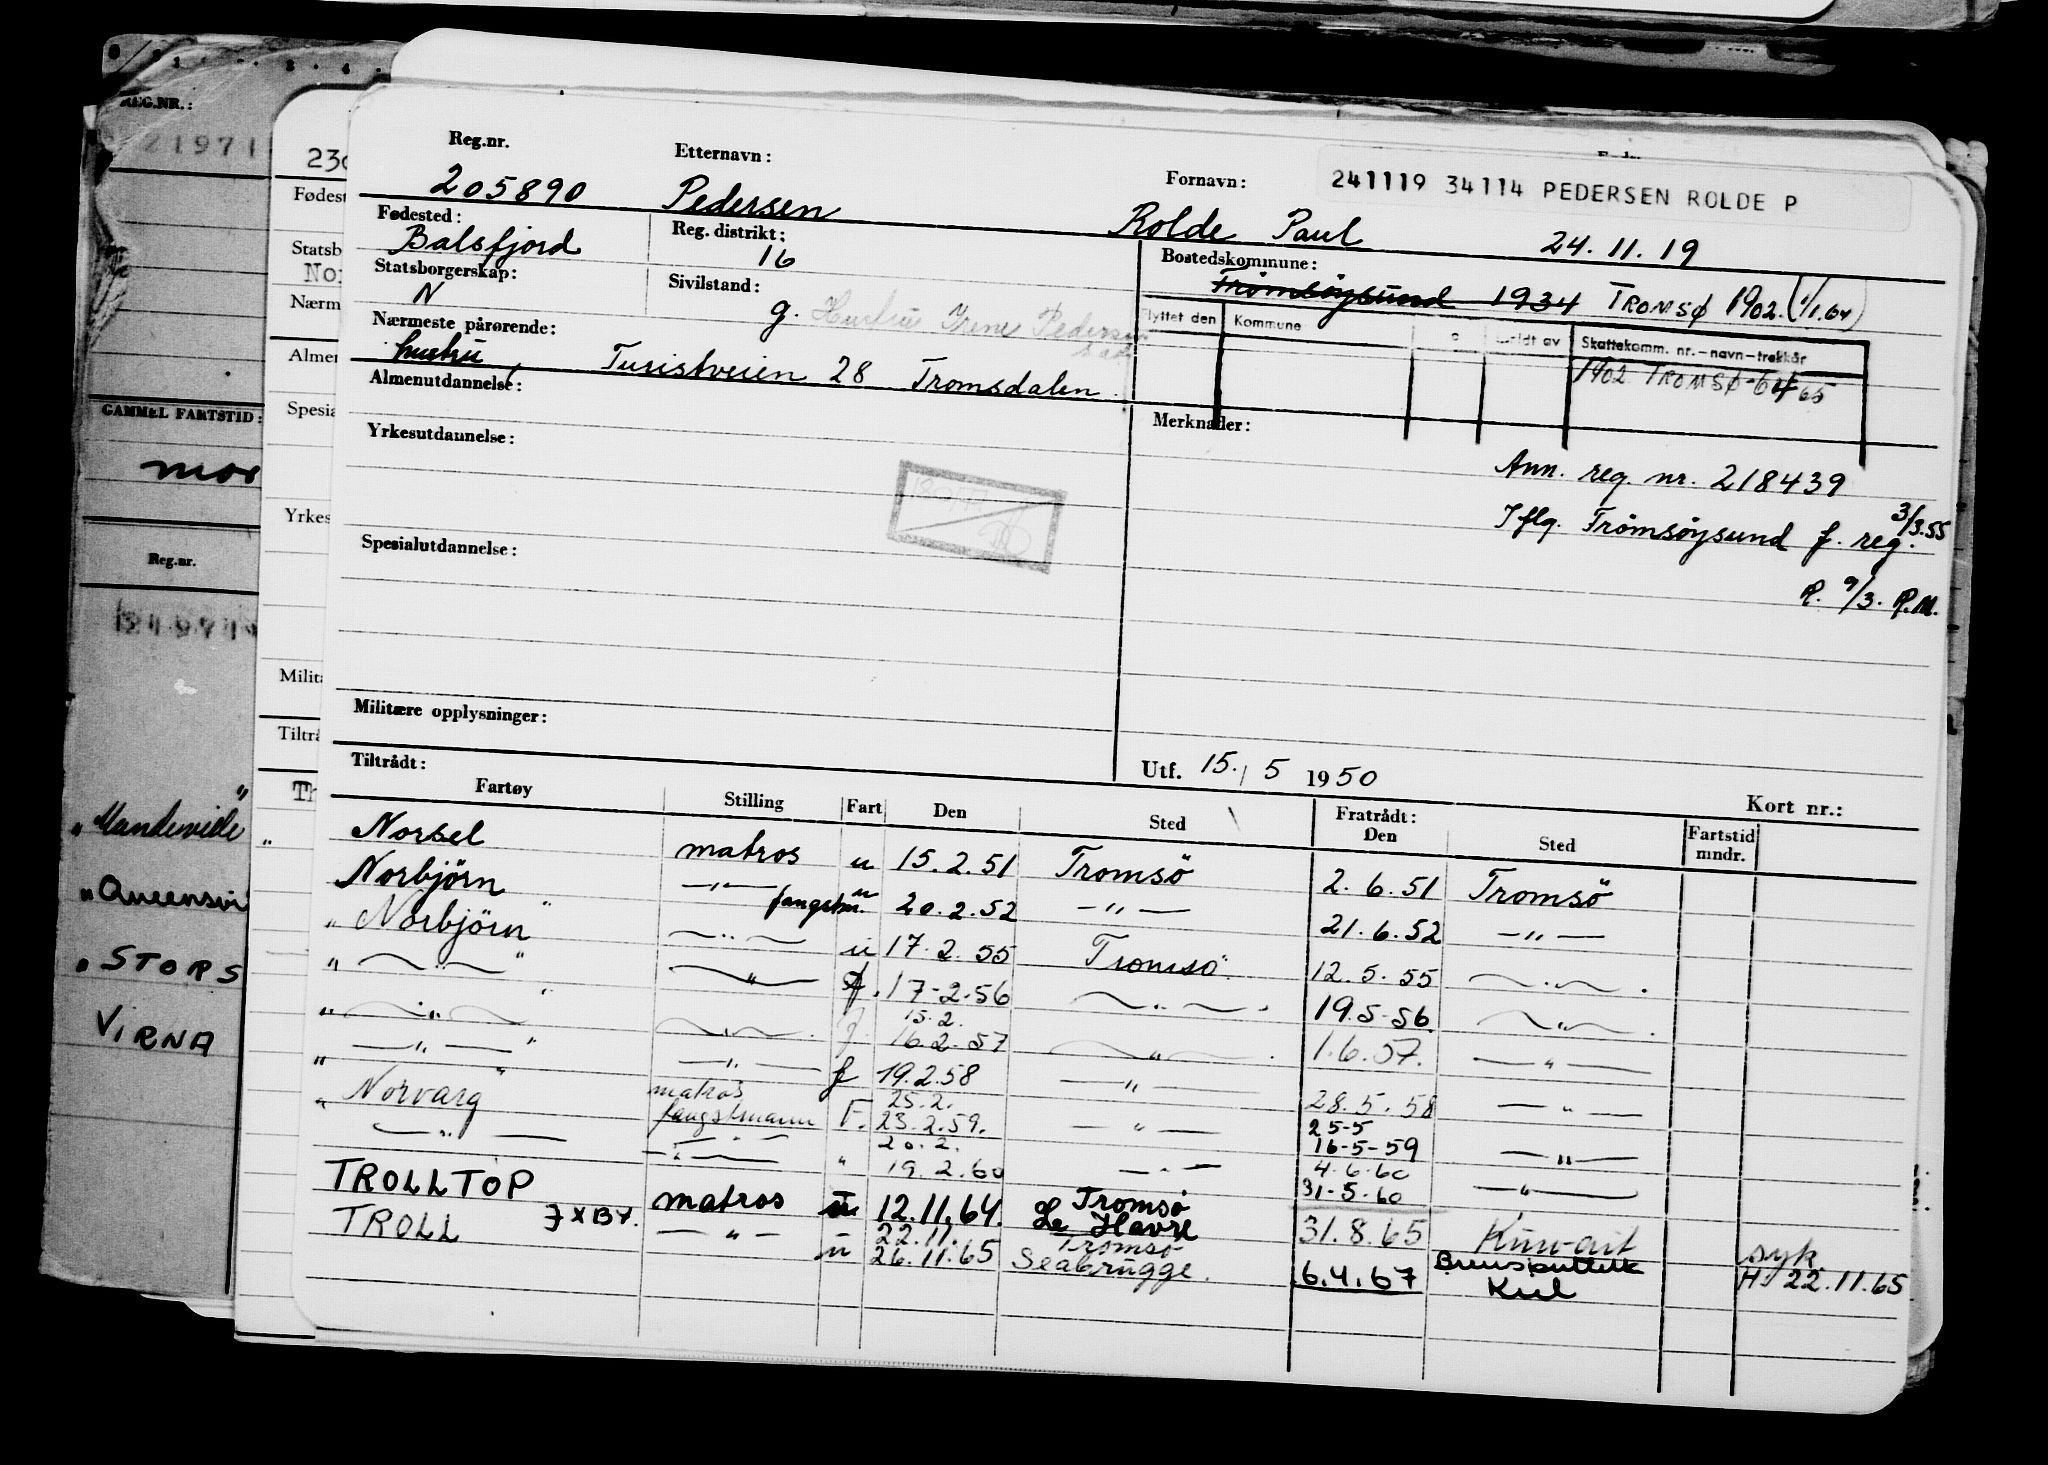 REG.NR.:
21971
GAMMEL FARTSTID:
mor
Reg.nr.
"Mandeville"
"Queensvi
"STORS
VIRNA
230
Fødest
Statsb
Nor
Nærm
Almen
Spesia
Yrkes
Milita
Tiltrå
Th
Reg.nr. Etternavn: Fornavn: 241119 34114 PEDERSEN ROLDE P
205890 Pedersen Rolde Paul 24.11.19
Fødested: Reg. distrikt: Bostedskommune:
Balsfjord 16 Tromsøysund 1934 TROMSØ 1902. (1/1.64)
Statsborgerskap: Sivilstand:
N g. Hustru Irene Pedersen
Flyttet den Kommune Meldt av Skattekomm. nr.-navn-trekkår
Nærmeste pårørende:
hustru, Turistveien 28 Tromsdalen.
1902 TROMSØ-64 65
Almenutdannelse: Merknader:
Yrkesutdannelse:
Ann. reg. nr. 218439
Iflg. Tromsøysund f. reg. 3/3.55
R. 9/3. R.M.
Spesialutdannelse:
Militære opplysninger:
Tiltrådt: Utf. 15./5 1950 Kort nr.:
Fartøy Stilling Fart Den Sted Fratrådt: Den Sted Fartstid mndr.
Norsel matros u 15.2.51 Tromsö 2.6.51 Tromsö
Norbjörn —"— fangstm. u 20.2.52 —"— 21.6.52 —"—
"Norbjörn" —"— u 17.2.55 Tromsö. 12.5.55 —"—.
"—"—" —"— f. 17-2-56 —"—. 19.5-56. —"—.
"—"—" —"—. f. 15.2. 16.2.57 —"—. 1.6.57. —"—
"—"—" —"— f 19.2.58 —"— 28.5.58 —"—
"Norvarg" matros fangstmann F. 25.2. 23.2.59. —"— 25-5 16-5-59 —"—
—"— —"— " 20.2. 19.2.60 —"— 4.6.60 31-5.60 —"—
TROLLTOP matros u 12.11.64. Tromsø Le Havre 31.8.65 Kuwait syk
TROLL JXBY. —"— u 22.11. 26.11.65 Tromsø Seabrugge. 6.4.67 Brunsbuttelk Kiel H. 22.11.65